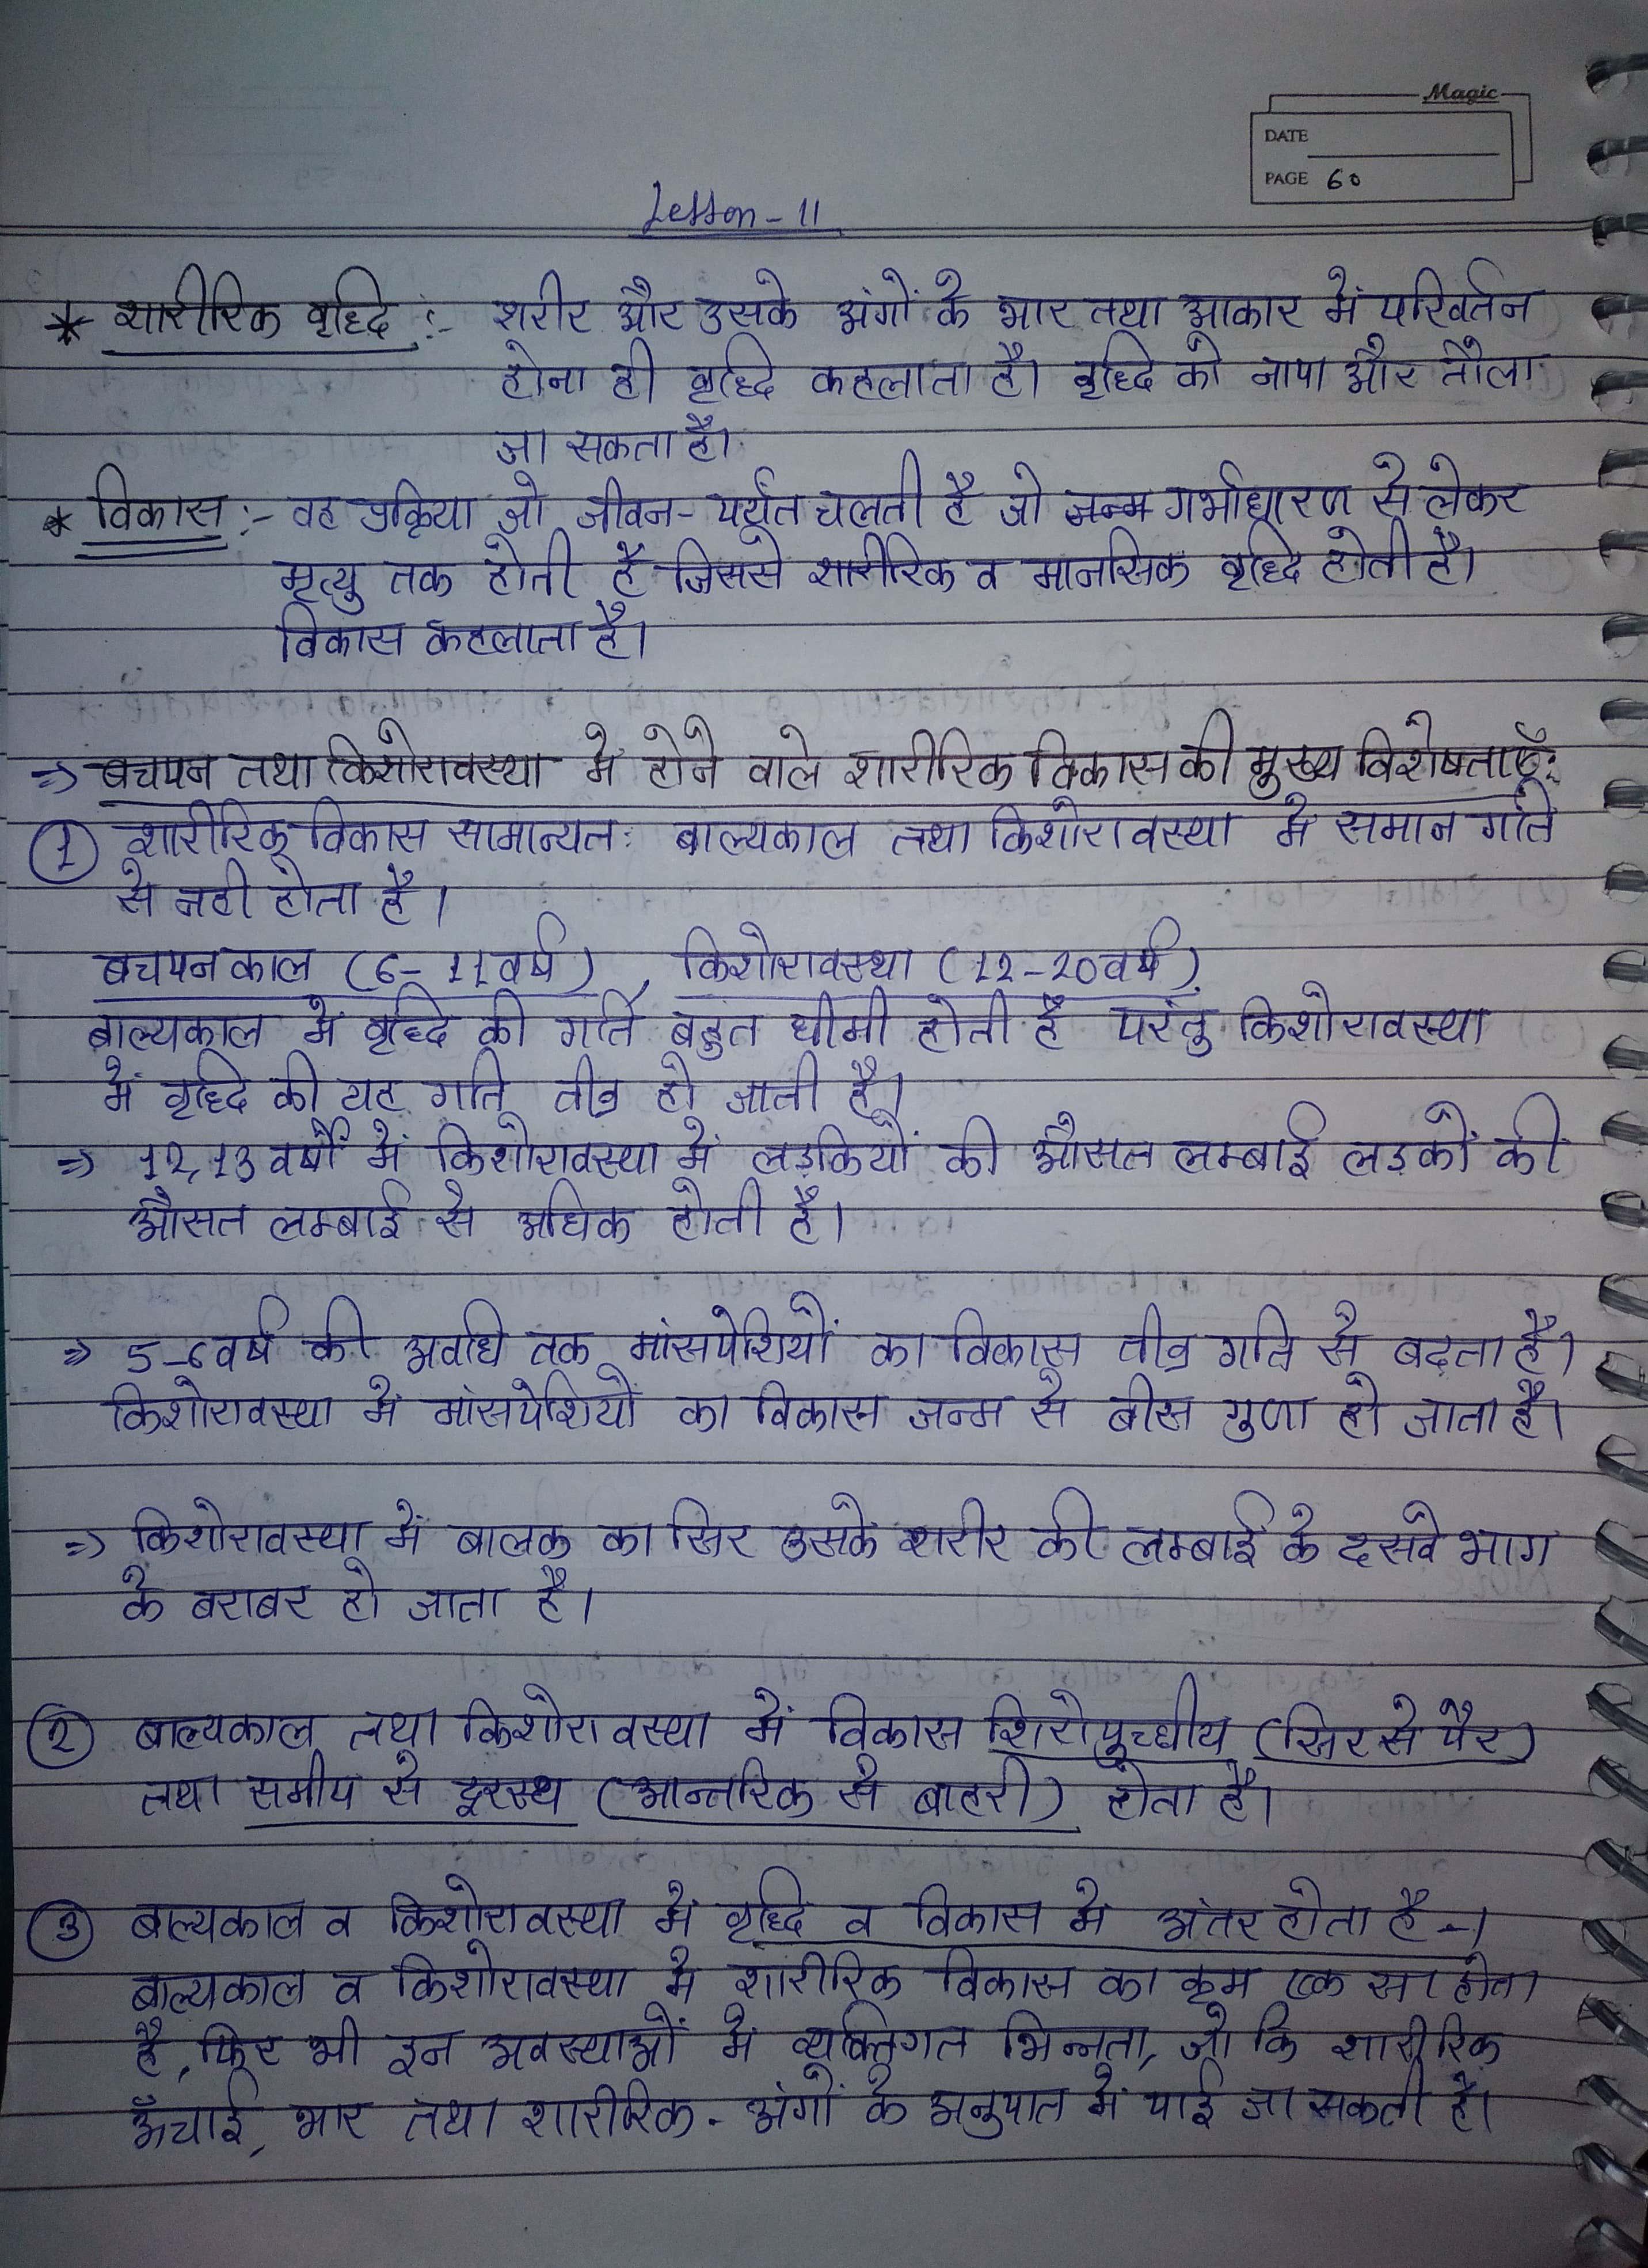 Magic
DATE
PAGE 60
Lesson - 11
* शारीरिक वृद्धि :- शरीर और उसके अंगों के भार तथा आकार में परिवर्तन
होना ही वृद्धि कहलाता है। वृद्धि को नापा और तौला
जा सकता है।
* विकास :- वह प्रक्रिया जो जीवन-पर्यंत चलती है जो जन्म गर्भाधारण से लेकर
मृत्यु तक होती है जिससे शारीरिक व मानसिक वृद्धि होती है।
विकास कहलाता है।
⇒ बचपन तथा किशोरावस्था मे होने वाले शारीरिक विकास की मुख्य विशेषताएँ:
① शारीरिक विकास सामान्यतः बाल्यकाल तथा किशोरावस्था मे समान गति
से नही होता है।
बचपन काल (6-11 वर्ष), किशोरावस्था (12-20 वर्ष)
बाल्यकाल मे वृद्धि की गति बहुत धीमी होती है परंतु किशोरावस्था
में वृद्धि की यह गति तीव्र हो जाती है।
⇒ 12,13 वर्षों में किशोरावस्था में लड़कियों की औसत लम्बाई लड़कों की
औसत लम्बाई से अधिक होती है।
⇒ 5-6 वर्ष की अवधि तक मांसपेशियों का विकास तीव्र गति से बढ़ता है।
किशोरावस्था में मांसपेशियों का विकास जन्म से बीस गुणा हो जाता है।
⇒ किशोरावस्था में बालक का सिर उसके शरीर की लम्बाई के दसवे भाग
के बराबर हो जाता है।
② बाल्यकाल तथा किशोरावस्था में विकास शिरोपुच्छीय (सिर से पैर)
तथा समीप से दूरस्थ (आन्तरिक से बाहरी) होता है।
③ बाल्यकाल व किशोरावस्था मे वृद्धि व विकास मे अंतर होता है -।
बाल्यकाल व किशोरावस्था मे शारीरिक विकास का क्रम एक सा होता
है, फिर भी इन अवस्थाओं मे व्यक्तिगत भिन्नता, जो कि शारीरिक
ऊँचाई, भार तथा शारीरिक - अंगों के अनुपात मे पाई जा सकती है।